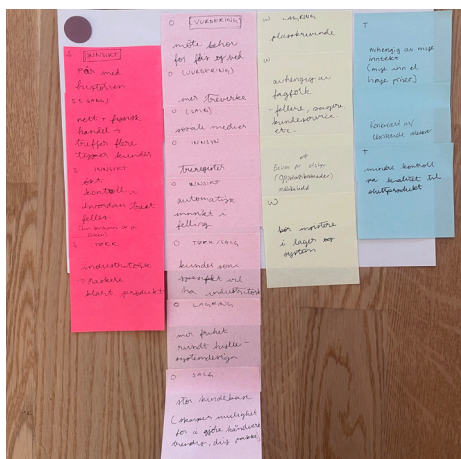 S INNSIKT
får med
historien
S (SALG)
nett + fysisk
handel →
treffer flere
typer kunder
S INNSIKT
god
kontroll i
hvordan treet
felles
S TØRK
industritørk
→ raskere
klart produkt
O VURDERING
møte behov
for fus og ved
O (VURDERING)
mer treverke
O (SALG)
sosiale medier
O INNSYN
treregister
O INNSIKT
automatisk
innsikt i
felling
O TØRK/SALG
kunder som
vil
ha industritørk
O LAGRING
mer frihet
rundt hylle-
systemdesign
O SALG
stor kundebase
( skaper mulighet
for å gjøre håndverk
trendy, dig
W LAGRING
plasskrevende
W
avhengig av
fagfolk
- fellere, sagere
kundeservice.
etc.
W
Behov for utstyr
W
bør mønstre
i lager og
system
T
avhengig av mye
innsekt
(mye inn el
høye priser)
Konkurranse m/
T
mindre kontroll
på kvalitet til
sluttprodukt